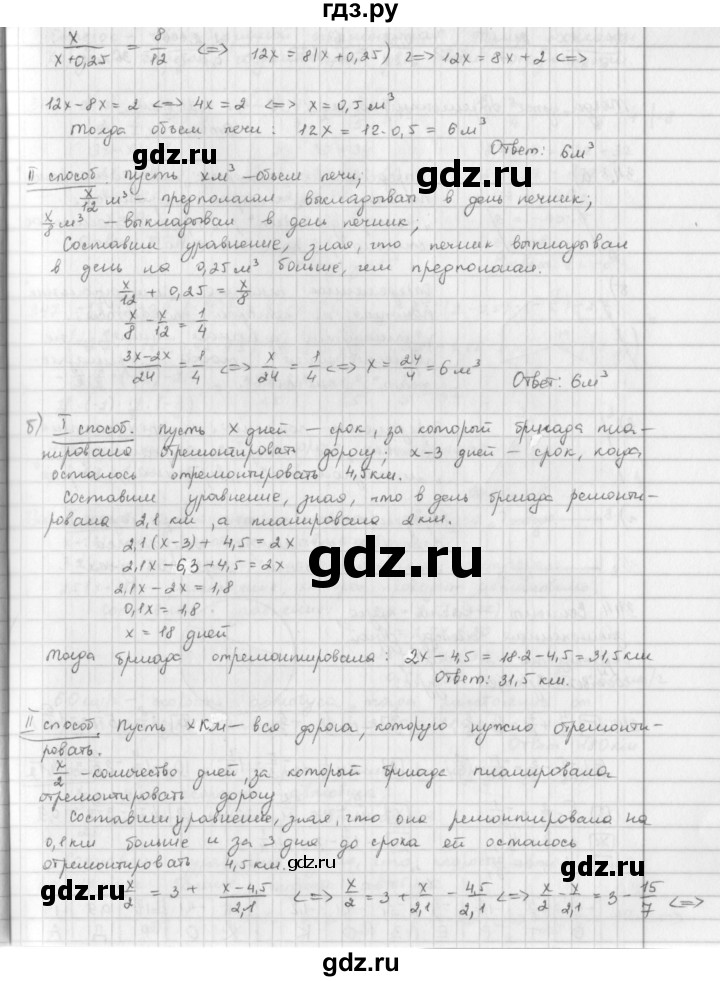 гдз.ру
x/(x+0,25) = 8/12 <=> 12x = 8(x+0,25) <=> 12x = 8x + 2 <=>
12x-8x = 2 <=> 4x = 2 <=> x = 0,5 м³
Тогда объем печи: 12x = 12·0,5 = 6 м³
Ответ: 6м³
II способ. пусть xм³ - объем печи;
x/12 м³ - предполагал выкладывать в день печник;
x/8 м³ - выкладывал в день печник;
Составим уравнение, зная, что печник выкладывал
в день на 0,25м³ больше, чем предполагал.
x/12 + 0,25 = x/8
x/8 - x/12 = 1/4
(3x-2x)/24 = 1/4 <=> x/24 = 1/4 <=> x = 24/4 = 6 м³
Ответ: 6м³
б) I способ. пусть x дней - срок, за который бригада пла-
нировала отремонтировать дорогу; x-3 дней - срок, когда
осталось отремонтировать 4,5км.
Составим уравнение, зная, что в день бригада ремонти-
ровала 2,1 км, а планировала 2км.
2,1(x-3) + 4,5 = 2x
2,1x - 6,3 + 4,5 = 2x
2,1x - 2x = 1,8
0,1x = 1,8
x = 18 дней
gdz.ru
Тогда бригада отремонтировала: 2x - 4,5 = 18·2 - 4,5 = 31,5 км
Ответ: 31,5 км.
II способ. Пусть xкм - вся дорога, которую нужно отремонти-
ровать.
x/2 - количество дней, за который бригада планировала
отремонтировать дорогу
Составим уравнение, зная, что она ремонтировала на
0,1км больше и за 3 дня до срока ей осталось
отремонтировать 4,5 км.
x/2 = 3 + (x-4,5)/2,1 <=> x/2 = 3 + x/2,1 - 4,5/2,1 <=> x/2 - x/2,1 = 3 - 15/7 <=>
gdz.ru
gdz.ru
gdz.ru
gdz.ru
gdz.ru